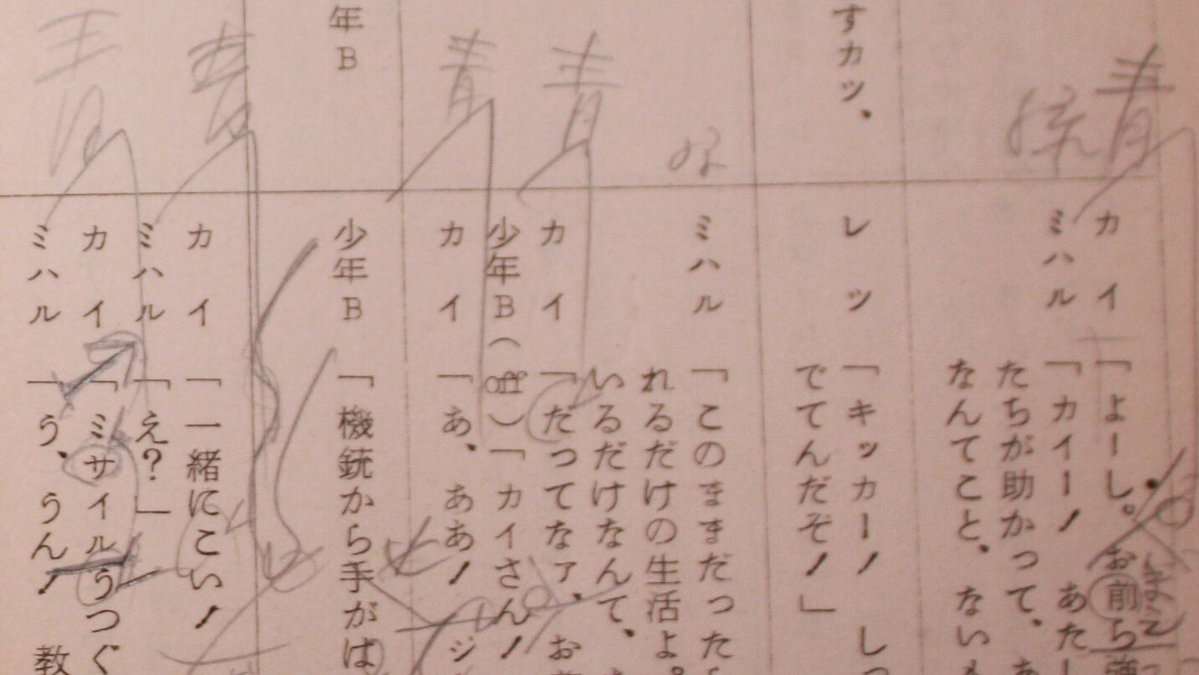 カイ「よーし。お前ら強
ミハル「カイー! あたし
たちが助かって、あ
なんてこと、ないも
すカッ、
レツ「キッカー! しっ
でてんだぞ!」
ミハル「このままだった
れるだけの生活よ。
いるだけなんて、
カイ「だってなァ、お
少年B(off)「カイさん!
カイ「あ、ああ! ジ
年B
少年B「機銃から手がは
カイ「一緒にこい!
ミハル「え?」
カイ「ミサイルうつぐ
ミハル「う、うん! 教
青
青
青
青
青